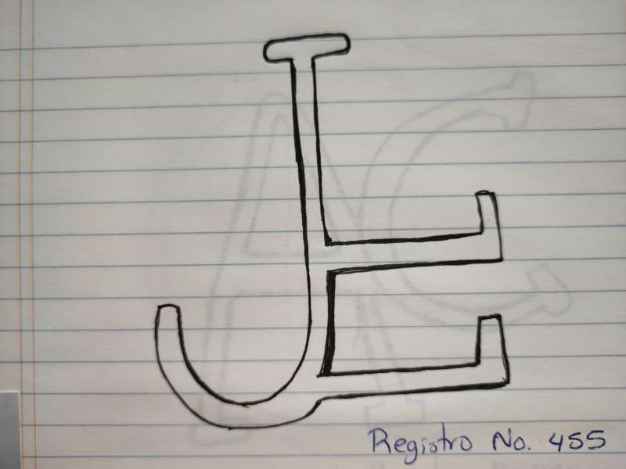 Registro No. 455